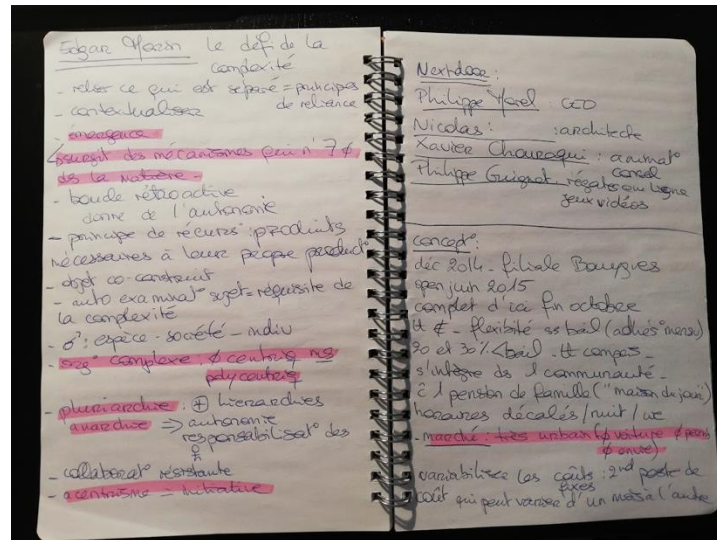 Edgar Morin le défi de la
complexité
- relier ce qui est séparé = principes
de reliance
- contextualiser
- émergence :
surgit des mécanismes qui n'
ds la matière -
- boucle rétroactive
donne de l'autonomie
- principe de récurs° : produits
nécessaires à leur propre product°
- objet co-construit
- auto examinat° sujet = réquisite de
la complexité
: espèce - société - indiv
- org° complexe : ∅ centriq ms
polycentriq
- pluriarchie : ⊕ hierarchies
anarchie => autonomie
responsabilisat° des
- collaborat° résistante
- acentrisme = initiative
Nextdoor :
Philippe Morel : CEO
Nicolas : : architecte
Xavier Chouraqui : animat°
conseil
Philippe Guignot, régates en ligne
jeux vidéos
concept° :
déc 2014 - filiale Bouygues
open juin 2015
complet d'ici fin octobre
flexibité ss bail (adhés° mensu)
20 et 30% < bail - tt compris -
s'intègre ds 1 communauté -
1 pension de famille ("maison de jouir")
horaires décalés / nuit / we
- marché : très urbain (∅ voiture ∅ permis
∅ envie)
variabiliser les coûts : 2nd poste de
fixes
coût qui peut varier d'un mois à l'autre